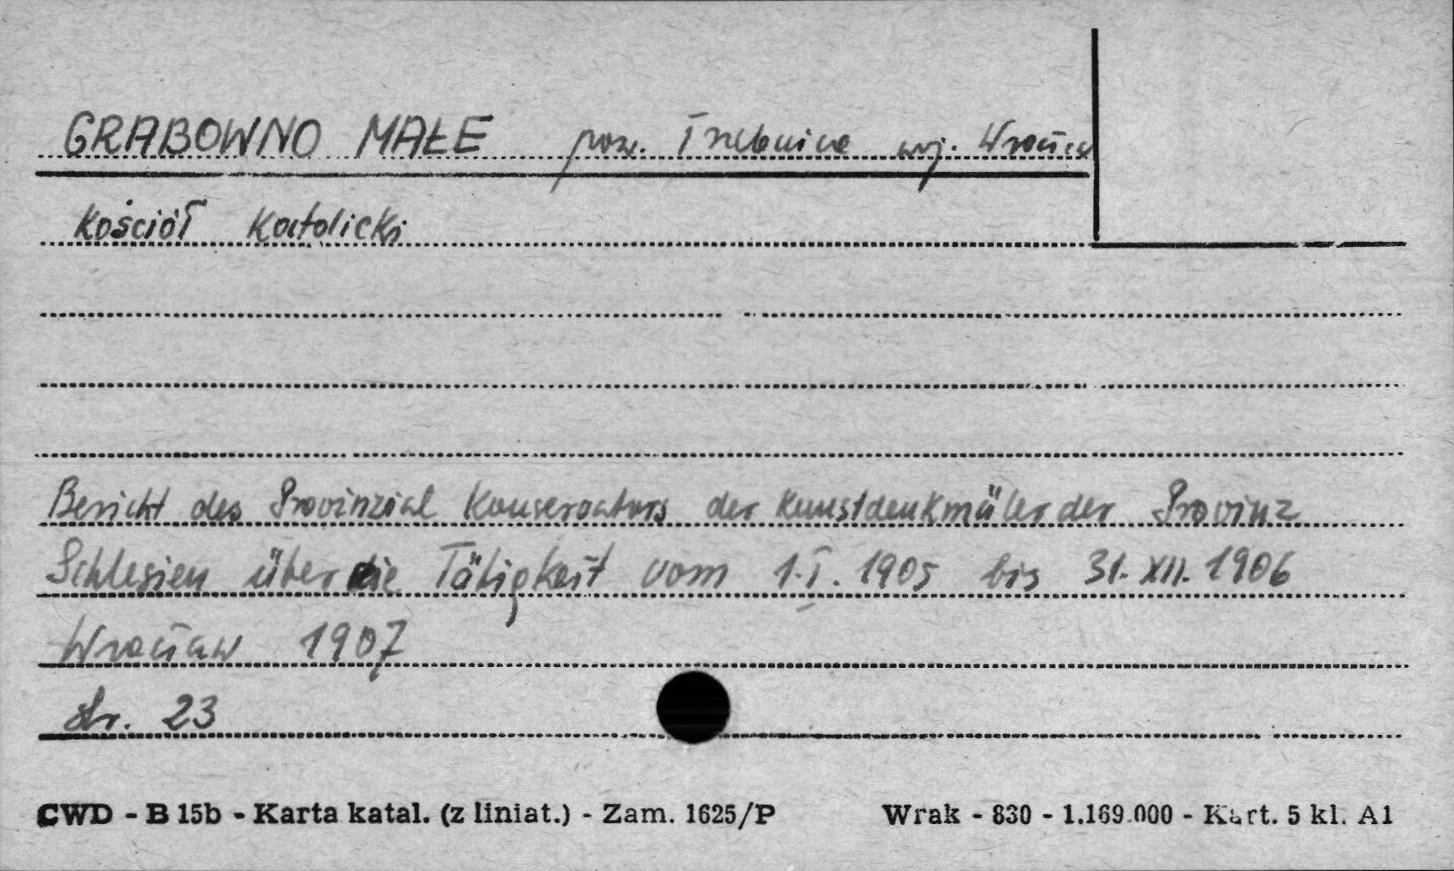 GRABOWNO MAŁE pow. Trzebnica woj. Wrocław
Kościół Katolicki
Bericht des Provinzial Konservators der Kunstdenkmäler der Provinz
Schlesien über die Tätigkeit vom 1.I.1905 bis 31.XII.1906
Wrocław 1907
str. 23
CWD - B 15b - Karta katal. (z liniat.) - Zam. 1625/P Wrak - 830 - 1.169.000 - Kart. 5 kl. A1